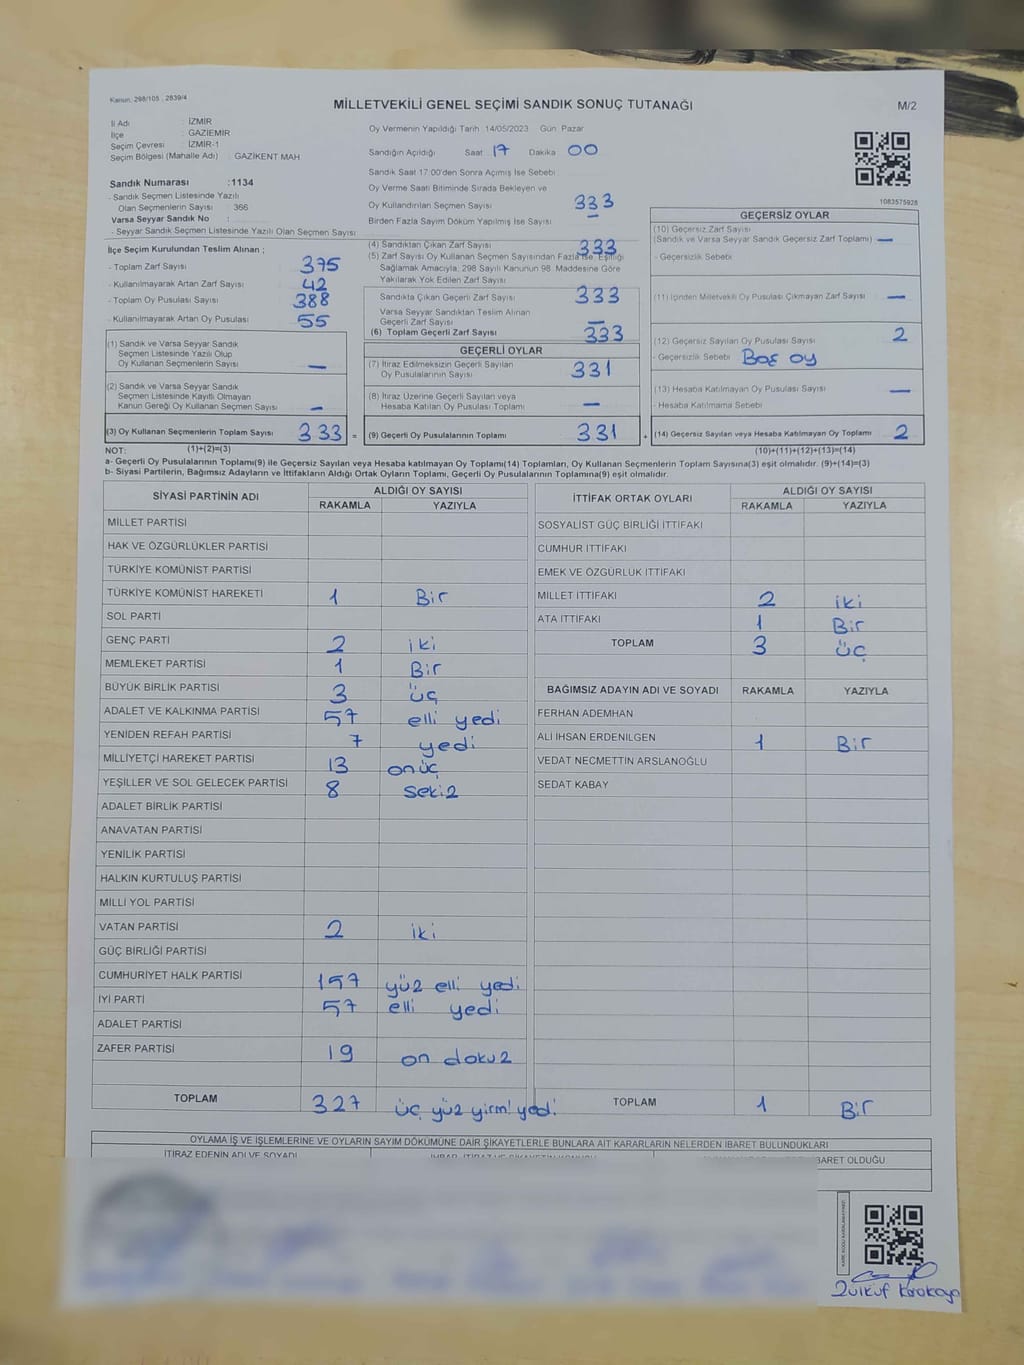 Kanun: 298/105 , 2839/4
MİLLETVEKİLİ GENEL SEÇİMİ SANDIK SONUÇ TUTANAĞI
M/2
İl Adı : İZMİR
İlçe : GAZİEMİR
Seçim Çevresi : İZMİR-1
Seçim Bölgesi (Mahalle Adı) : GAZİKENT MAH
Sandık Numarası :1134
- Sandık Seçmen Listesinde Yazılı
Olan Seçmenlerin Sayısı : 366
Varsa Seyyar Sandık No :
- Seyyar Sandık Seçmen Listesinde Yazılı Olan Seçmen Sayısı:
Oy Vermenin Yapıldığı Tarih 14/05/2023 Gün Pazar
Sandığın Açıldığı Saat 17 Dakika 00
Sandık Saat 17:00'den Sonra Açılmış İse Sebebi
Oy Verme Saati Bitiminde Sırada Bekleyen ve
Oy Kullandırılan Seçmen Sayısı 333
Birden Fazla Sayım Döküm Yapılmış İse Sayısı —
1083575928
İlçe Seçim Kurulundan Teslim Alınan ;
- Toplam Zarf Sayısı 375
- Kullanılmayarak Artan Zarf Sayısı 42
- Toplam Oy Pusulası Sayısı 388
- Kullanılmayarak Artan Oy Pusulası 55
(1) Sandık ve Varsa Seyyar Sandık
Seçmen Listesinde Yazılı Olup
Oy Kullanan Seçmenlerin Sayısı —
(2) Sandık ve Varsa Seyyar Sandık
Seçmen Listesinde Kayıtlı Olmayan
Kanun Gereği Oy Kullanan Seçmen Sayısı —
(3) Oy Kullanan Seçmenlerin Toplam Sayısı 333 =
(4) Sandıktan Çıkan Zarf Sayısı 333
(5) Zarf Sayısı Oy Kullanan Seçmen Sayısından Fazla ise, Eşitliği
Sağlamak Amacıyla; 298 Sayılı Kanunun 98. Maddesine Göre
Yakılarak Yok Edilen Zarf Sayısı
Sandıkta Çıkan Geçerli Zarf Sayısı 333
Varsa Seyyar Sandıktan Teslim Alınan
Geçerli Zarf Sayısı —
(6) Toplam Geçerli Zarf Sayısı 333
GEÇERLİ OYLAR
(7) İtiraz Edilmeksizin Geçerli Sayılan
Oy Pusulalarının Sayısı 331
(8) İtiraz Üzerine Geçerli Sayılan veya
Hesaba Katılan Oy Pusulası Toplamı —
(9) Geçerli Oy Pusulalarının Toplamı 331 +
GEÇERSİZ OYLAR
(10) Geçersiz Zarf Sayısı
(Sandık ve Varsa Seyyar Sandık Geçersiz Zarf Toplamı) —
- Geçersizlik Sebebi
(11) İçinden Milletvekili Oy Pusulası Çıkmayan Zarf Sayısı —
(12) Geçersiz Sayılan Oy Pusulası Sayısı 2
- Geçersizlik Sebebi Boş oy
(13) Hesaba Katılmayan Oy Pusulası Sayısı —
- Hesaba Katılmama Sebebi
(14) Geçersiz Sayılan veya Hesaba Katılmayan Oy Toplamı 2
NOT: (1)+(2)=(3)
(10)+(11)+(12)+(13)=(14)
a- Geçerli Oy Pusulalarının Toplamı(9) ile Geçersiz Sayılan veya Hesaba katılmayan Oy Toplamı(14) Toplamları, Oy Kullanan Seçmenlerin Toplam Sayısına(3) eşit olmalıdır. (9)+(14)=(3)
b- Siyasi Partilerin, Bağımsız Adayların ve İttifakların Aldığı Ortak Oyların Toplamı, Geçerli Oy Pusulalarının Toplamına(9) eşit olmalıdır.
SİYASİ PARTİNİN ADI ALDIĞI OY SAYISI
RAKAMLA YAZIYLA
MİLLET PARTİSİ
HAK VE ÖZGÜRLÜKLER PARTİSİ
TÜRKİYE KOMÜNİST PARTİSİ
TÜRKİYE KOMÜNİST HAREKETİ 1 Bir
SOL PARTİ
GENÇ PARTİ 2 iki
MEMLEKET PARTİSİ 1 Bir
BÜYÜK BİRLİK PARTİSİ 3 üç
ADALET VE KALKINMA PARTİSİ 57 elli yedi
YENİDEN REFAH PARTİSİ 7 yedi
MİLLİYETÇİ HAREKET PARTİSİ 13 onüç
YEŞİLLER VE SOL GELECEK PARTİSİ 8 sekiz
ADALET BİRLİK PARTİSİ
ANAVATAN PARTİSİ
YENİLİK PARTİSİ
HALKIN KURTULUŞ PARTİSİ
MİLLİ YOL PARTİSİ
VATAN PARTİSİ 2 iki
GÜÇ BİRLİĞİ PARTİSİ
CUMHURİYET HALK PARTİSİ 157 yüz elli yedi
İYİ PARTİ 57 elli yedi
ADALET PARTİSİ
ZAFER PARTİSİ 19 on dokuz
TOPLAM 327 üç yüz yirmi yedi
İTTİFAK ORTAK OYLARI ALDIĞI OY SAYISI
RAKAMLA YAZIYLA
SOSYALİST GÜÇ BİRLİĞİ İTTİFAKI
CUMHUR İTTİFAKI
EMEK VE ÖZGÜRLÜK İTTİFAKI
MİLLET İTTİFAKI 2 iki
ATA İTTİFAKI 1 Bir
TOPLAM 3 üç
BAĞIMSIZ ADAYIN ADI VE SOYADI RAKAMLA YAZIYLA
FERHAN ADEMHAN
ALİ İHSAN ERDENİLGEN 1 Bir
VEDAT NECMETTİN ARSLANOĞLU
SEDAT KABAY
TOPLAM 1 Bir
OYLAMA İŞ VE İŞLEMLERİNE VE OYLARIN SAYIM DÖKÜMÜNE DAİR ŞİKAYETLERLE BUNLARA AİT KARARLARIN NELERDEN İBARET BULUNDUKLARI
İTİRAZ EDENİN ADI VE SOYADI
İBARET OLDUĞU